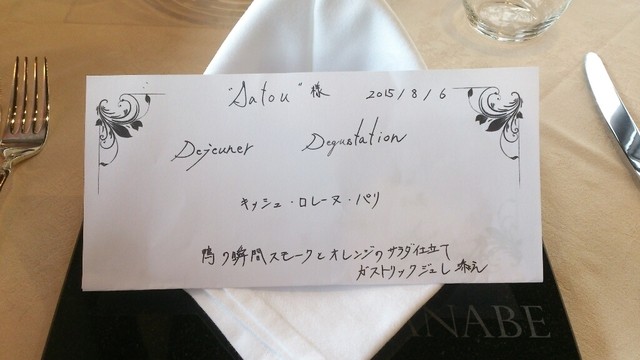 "Satou" 様 2015/8/6
Dejeuner Degustation
キッシュ・ロレーヌ・パリ
鴨の瞬間スモークとオレンジのサラダ仕立て
ガストリックジュレ添え
NABE